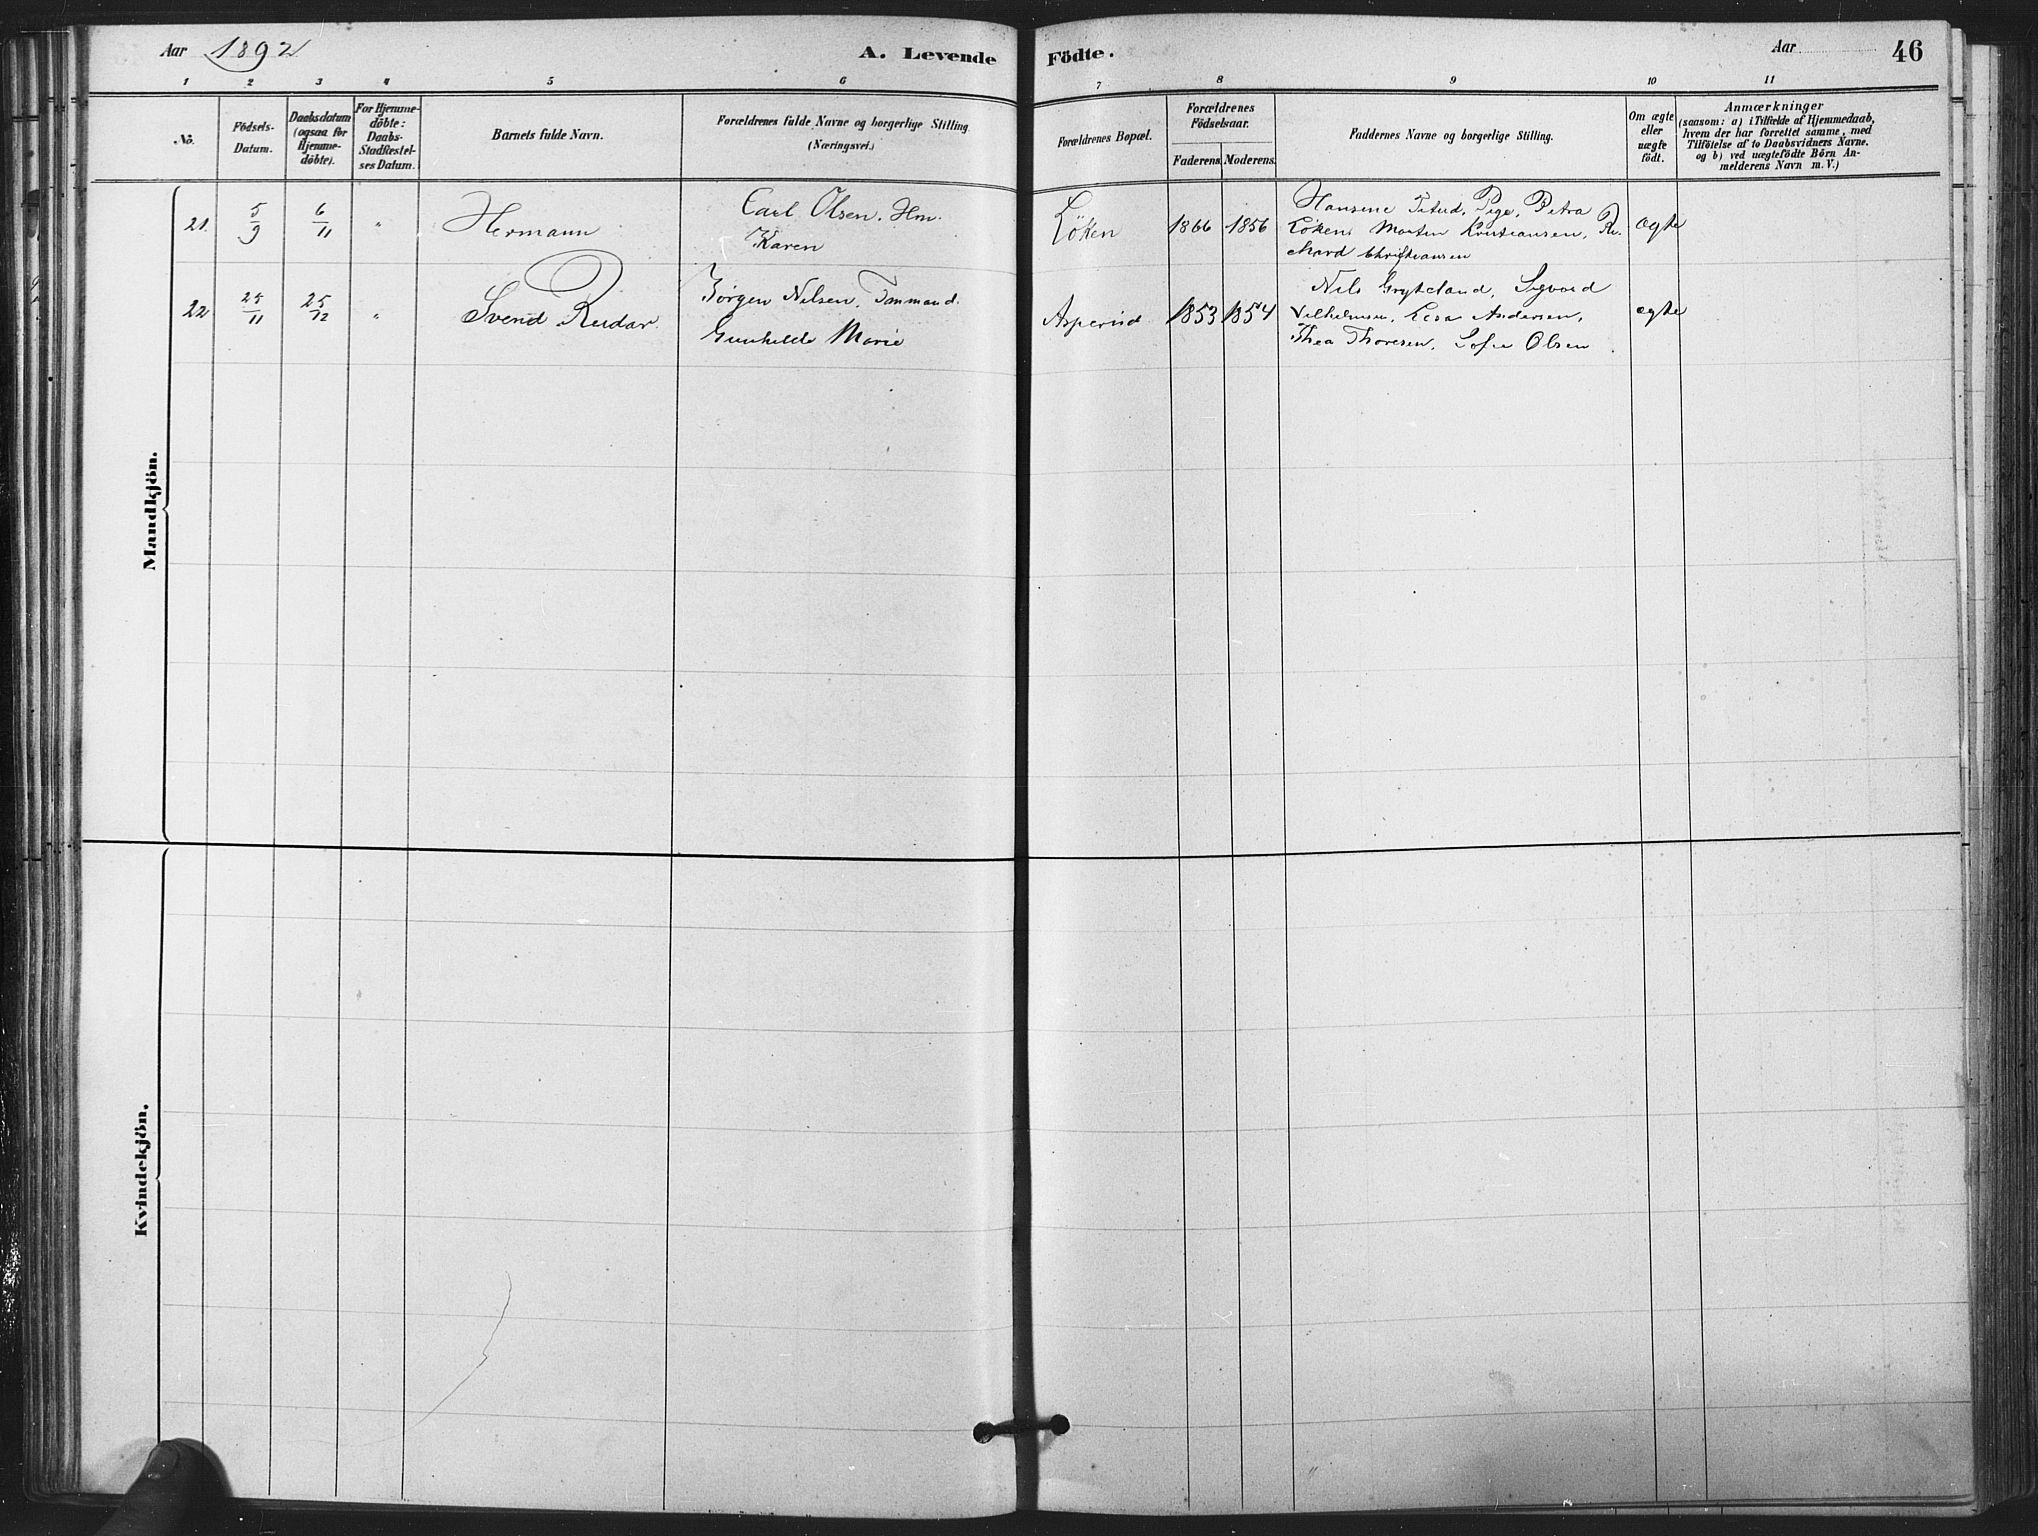 Aar 1892
A. Levende
Födte.
Aar
46
1 2 3 4 5 6 7 8 9 10 11
No.
Födsels-
Datum.
Daabsdatum
(ogsaa for
Hjemme-
döbte).
For Hjemme-
döbte:
Daabs-
Stadfæstel-
ses Datum.
Barnets fulde Navn.
Forældrenes fulde Navne og borgerlige Stilling
(Næringsvei.)
Forældrenes Bopæl.
Forældrenes
Födselsaar.
Faderens. Moderens.
Faddernes Navne og borgerlige Stilling.
Om ægte
eller
uægte
födt.
Anmærkninger
(saasom: a) i Tilfælde af Hjemmedaab,
hvem der har forrettet samme, med
Tilföielse af to Daabsvidners Navne.
og b) ved uægtefödte Börn An-
melderens Navn m. V.)
Mandkjön.
21. 5/9 6/11 " Hermann
Carl Olsen. Hm.
Karen
Løken 1866 1856
Hansine Pige, Petra
Løken, Morten Kristiansen, Ri-
chard Christiansen
ægte
22 25/11 25/12 " Svend Reidar
Jörgen Nilsen,
Gunhilde Marie
Asperud 1853 1854
Nils Grykeland, Sigvard
Vilhelmsen, Andersen,
Thea Thoresen, Sofie Olsen
ægte
Kvindekjön.